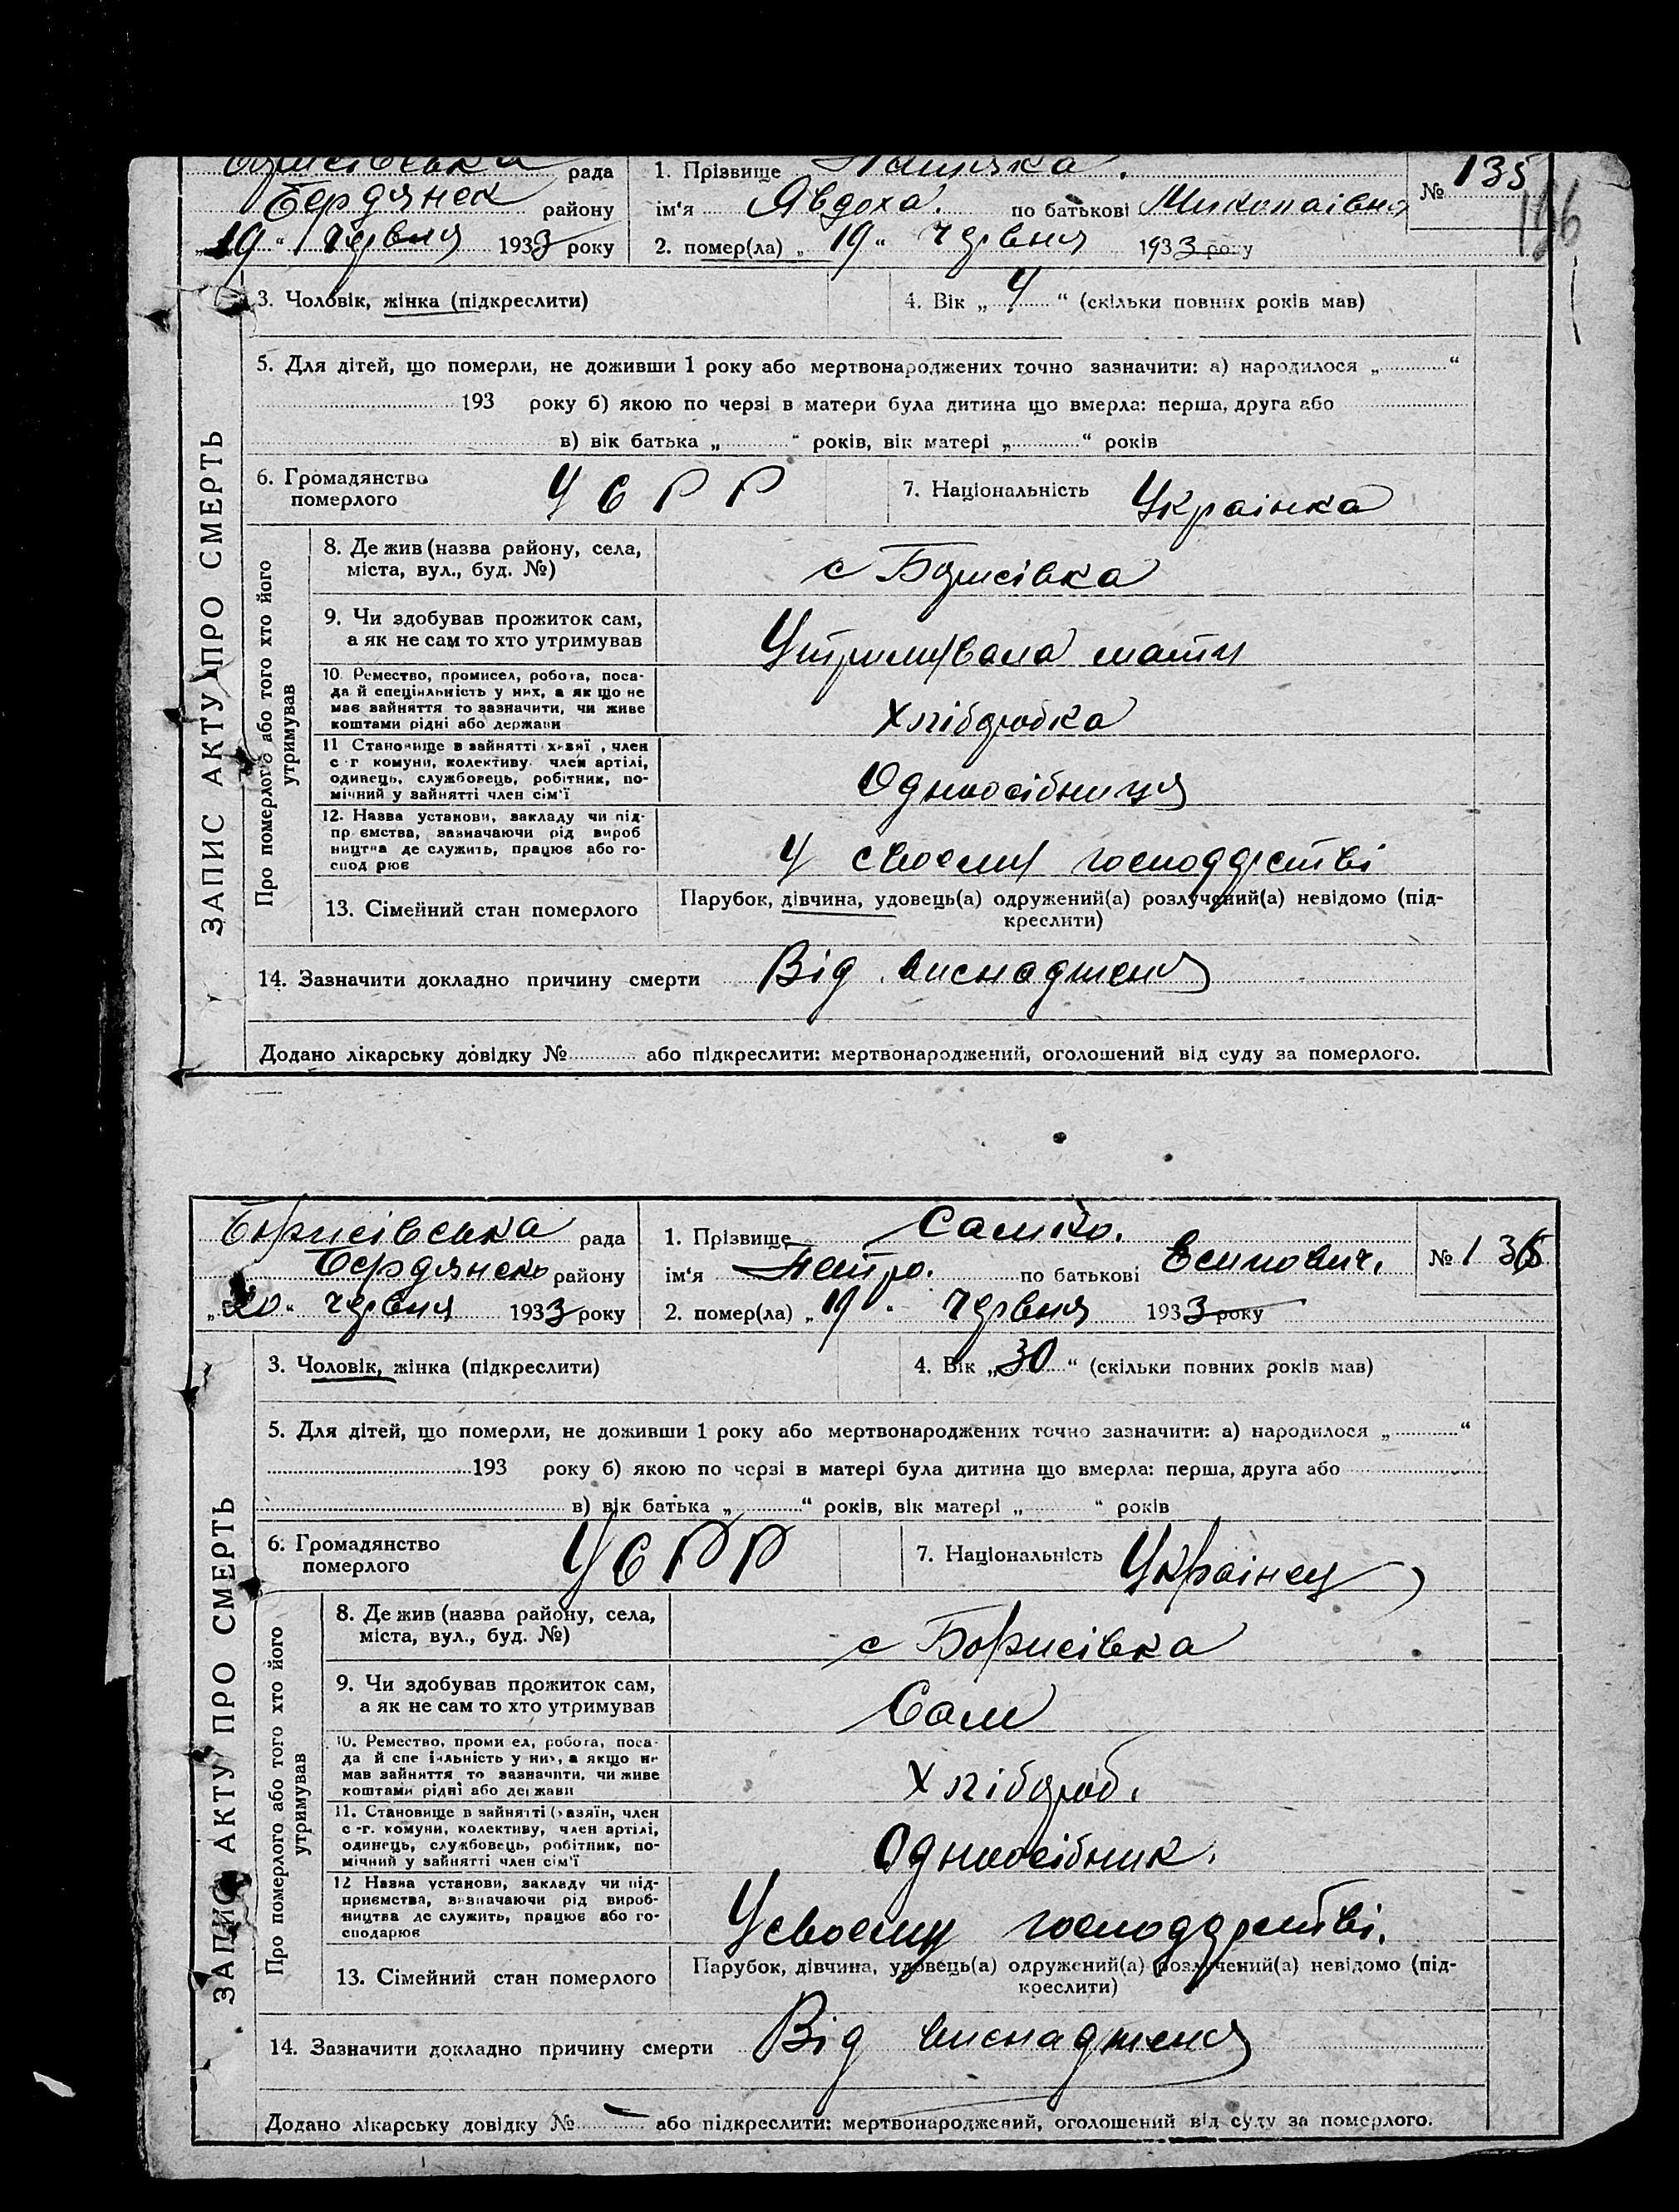 Борисівська рада 1. Прізвище № 135
Бердянськ району ім‘я Явдоха. по батькові Миколаівна 136
„19“ червня 1933 року 2. помер(ла) „19“ червня 1933 року
3. Чоловік, жінка (підкреслити) 4. Вік „4“ (скільки повних років мав)
5. Для дітей, що померли, не доживши 1 року або мертвонароджених точно зазначити: а) народилося „ “
193 року б) якою по черзі в матери була дитина що вмерла: перша, друга або
в) вік батька „ “ років, вік матері „ “ років
6. Громадянство
померлого
УСРР
7. Національність Украінка
ЗАПИС АКТУ ПРО СМЕРТЬ
Про померлого або того хто його
утримував
8. Де жив (назва району, села,
міста, вул., буд. №)
с Борисівка
9. Чи здобував прожиток сам,
а як не сам то хто утримував
Утримувала мати
10 Ремество, промисел, робота, поса-
да й спеціяльність у них, а як що не
має зайняття то зазначити, чи живе
коштами рідні або держави
Хліборобка
11 Становище в зайнятті х зяї , член
с г комуни, колективу член артілі,
одинець, службовець, робітник, по-
мічний у зайнятті член сім‘ї
Одноосібниця
12. Назва установи, закладу чи під-
пр ємства, зазначаючи рід вироб
ництва де служить, працює або го-
спод рює
У своему господарстві
13. Сімейний стан померлого
Парубок, дівчина, удовець(а) одружений(а) розлучений(а) невідомо (під-
креслити)
14. Зазначити докладно причину смерти Від виснадження
Додано лікарську довідку № або підкреслити: мертвонароджений, оголошений від суду за померлого.
Борисівська рада 1. Прізвище Самко. № 136
Бердянско району ім‘я Петро. по батькові Есипович.
„20“ червня 1933 року 2. помер(ла) „19“ червня 1933 року
3. Чоловік, жінка (підкреслити) 4. Вік „30“ (скільки повних років мав)
5. Для дітей, що померли, не доживши 1 року або мертвонароджених точно зазначити: а) народилося „ “
193 року б) якою по черзі в матері була дитина що вмерла: перша, друга або
в) вік батька „ “ років, вік матері „ “ років
6. Громадянство
померлого
УСРР
7. Національність Украінец
ЗАПИС АКТУ ПРО СМЕРТЬ
Про померлого або того хто його
утримував
8. Де жив (назва району, села,
міста, вул., буд. №)
с Борисівка
9. Чи здобував прожиток сам,
а як не сам то хто утримував
Сам
10. Ремество, проми ел, робота, поса-
да й спе і льність у них, а якщо не
мав зайняття то зазначити, чи живе
коштами рідні або держави
Хлібороб.
11. Становище в зайнятті (хазяїн, член
с-г. комуни, колективу, член артілі,
одинець, службовець, робітник, по-
мічний у зайнятті член сім‘ї
Одноосібник.
12 Назва установи, закладу чи під-
приємства, зазначаючи рід вироб-
ництва де служить, працює або го-
сподарює
У своему господарстві.
13. Сімейний стан померлого
Парубок, дівчина, удовець(а) одружений(а) розлучений(а) невідомо (під-
креслити)
14. Зазначити докладно причину смерти Від виснадження
Додано лікарську довідку № або підкреслити: мертвонароджений, оголошений від суду за померлого.